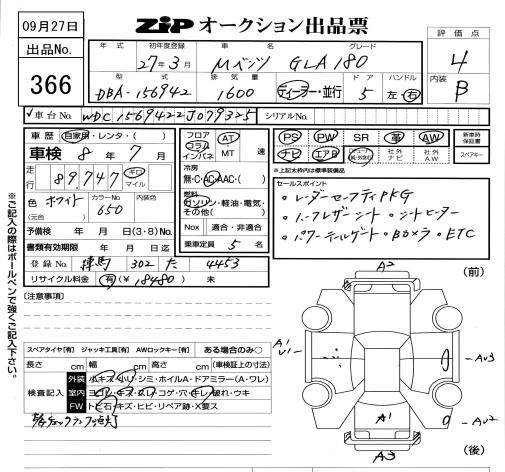 09月27日
ZiPオークション出品票
出品No.
366
年式 初年度登録 車名 グレード
27年3月 Mベンツ GLA180
型式 排気量 ドア ハンドル
DBA-156942 1600 ディーラー・並行 5 左・右
評価点
4
内装
B
車台No. WDC1569422J079325 シリアルNo.
車歴 自家用・レンタ・( )
車検 8年 7月
走行 89,747 キロ マイル
色 ホワイト カラーNo. 650 内装色
(元色)
予備検 年 月 日(3・8)No.
書類有効期限 年 月 日迄
登録No. 練馬 302 た 4453
リサイクル料金 有(¥18480) 未
フロア コラム インパネ AT MT 速
冷房 無・C・AC・AAC・( )
燃料 ガソリン・軽油・電気・その他( )
Nox 適合・非適合
乗車定員 5 名
PS PW SR 革 AW 新車時保証書
ナビ エアB 社外ナビ 社外AW スペアキー
※上記太枠内は標準装備品
セールスポイント
・レーダーセーフティPKG
・ハーフレザーシート・シートヒーター
・パワーテールゲート・Bカメラ・ETC
※ご記入の際はボールペンで強くご記入下さい。
[注意事項]
スペアタイヤ[有] ジャッキ工具[有] AWロックキー[有] ある場合のみ○
長さ cm 幅 cm 高さ cm (車検証上の寸法)
検査記入 外装 小キズ・小U・シミ・ホイルA・ドアミラー(A・ワレ)
室内 ヨゴレ・キズ・スレ・コゲ・穴・キレ・破れ・ウキ
FW トビ石・キズ・ヒビ・リペア跡・X要ス
(前)
A2
A1
U1
AU3
A1
AU2
A3
(後)